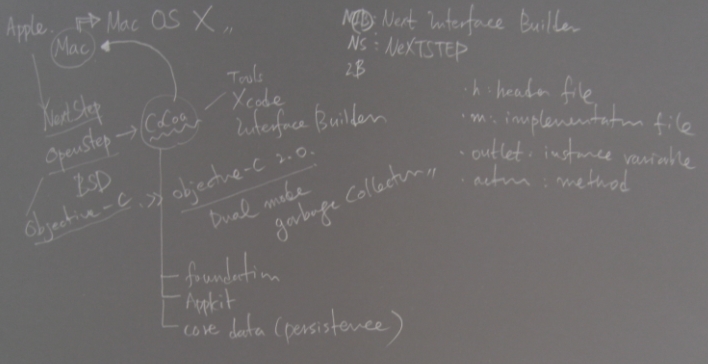 Apple. ⇒ Mac OS X
Mac
NextStep
Openstep → Cocoa
BSD
Objective-C. » Objective-C 2.0.
Dual mode
garbage Collection
Tools
Xcode
Interface Builder
foundation
Appkit
core data (persistence)
NIB: Next Interface Builder
NS: NeXTSTEP
.h: header file
.m: implementation file
. outlet: instance variable
. action: method